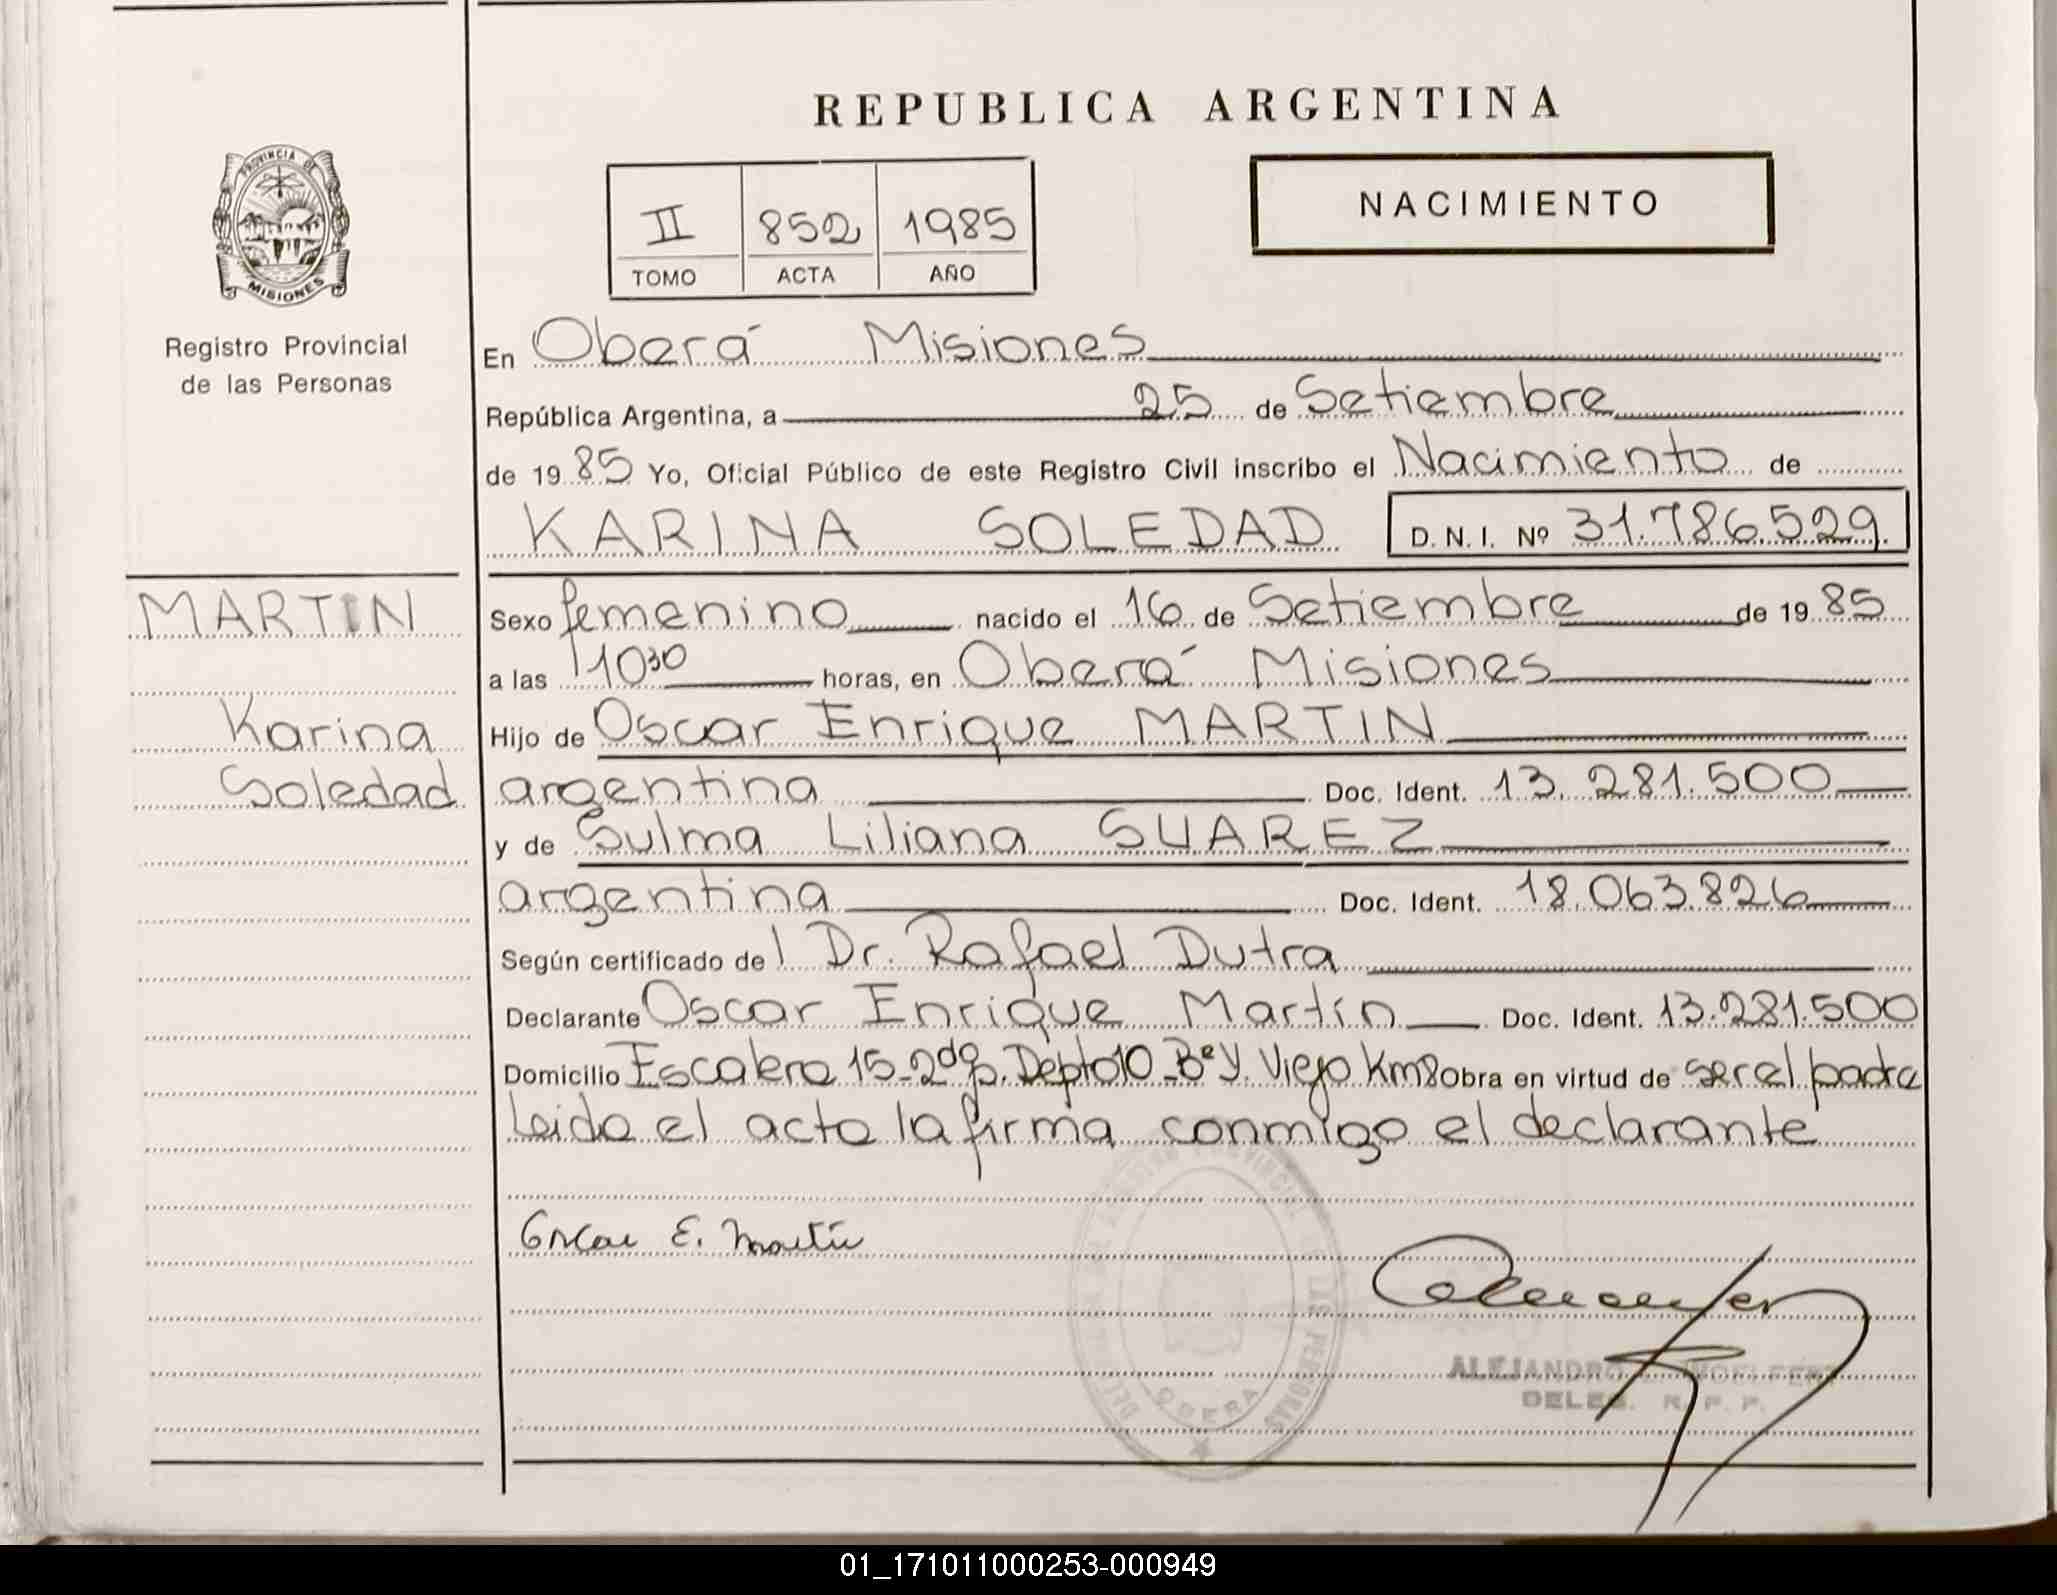 REPUBLICA ARGENTINA
PROVINCIA DE
MISIONES
Registro Provincial
de las Personas
II 852 1985
TOMO ACTA AÑO
NACIMIENTO
En Oberá Misiones
República Argentina, a 25 de Setiembre
de 1985 Yo, Oficial Público de este Registro Civil inscribo el Nacimiento de
KARINA SOLEDAD D. N. I. Nº 31.786.529
MARTIN
Karina
Soledad
Sexo femenino nacido el 16 de Setiembre de 1985
a las 1030 horas, en Oberá Misiones
Hijo de Oscar Enrique MARTIN
argentina Doc. Ident. 13.281.500
y de Sulma Liliana SUAREZ
argentina Doc. Ident. 18.063.826
Según certificado del Dr. Rafael Dutra
Declarante Oscar Enrique Martín Doc. Ident. 13.281.500
Domicilio Escalera 15-2do p. Depto10-Bº Y. Viejo Km8 obra en virtud de ser el padre
Leida el acta la firma conmigo el declarante
Oscar E. Martín
OBERA
ALEJANDRO
DELEG. R. P. P.
01_171011000253-000949